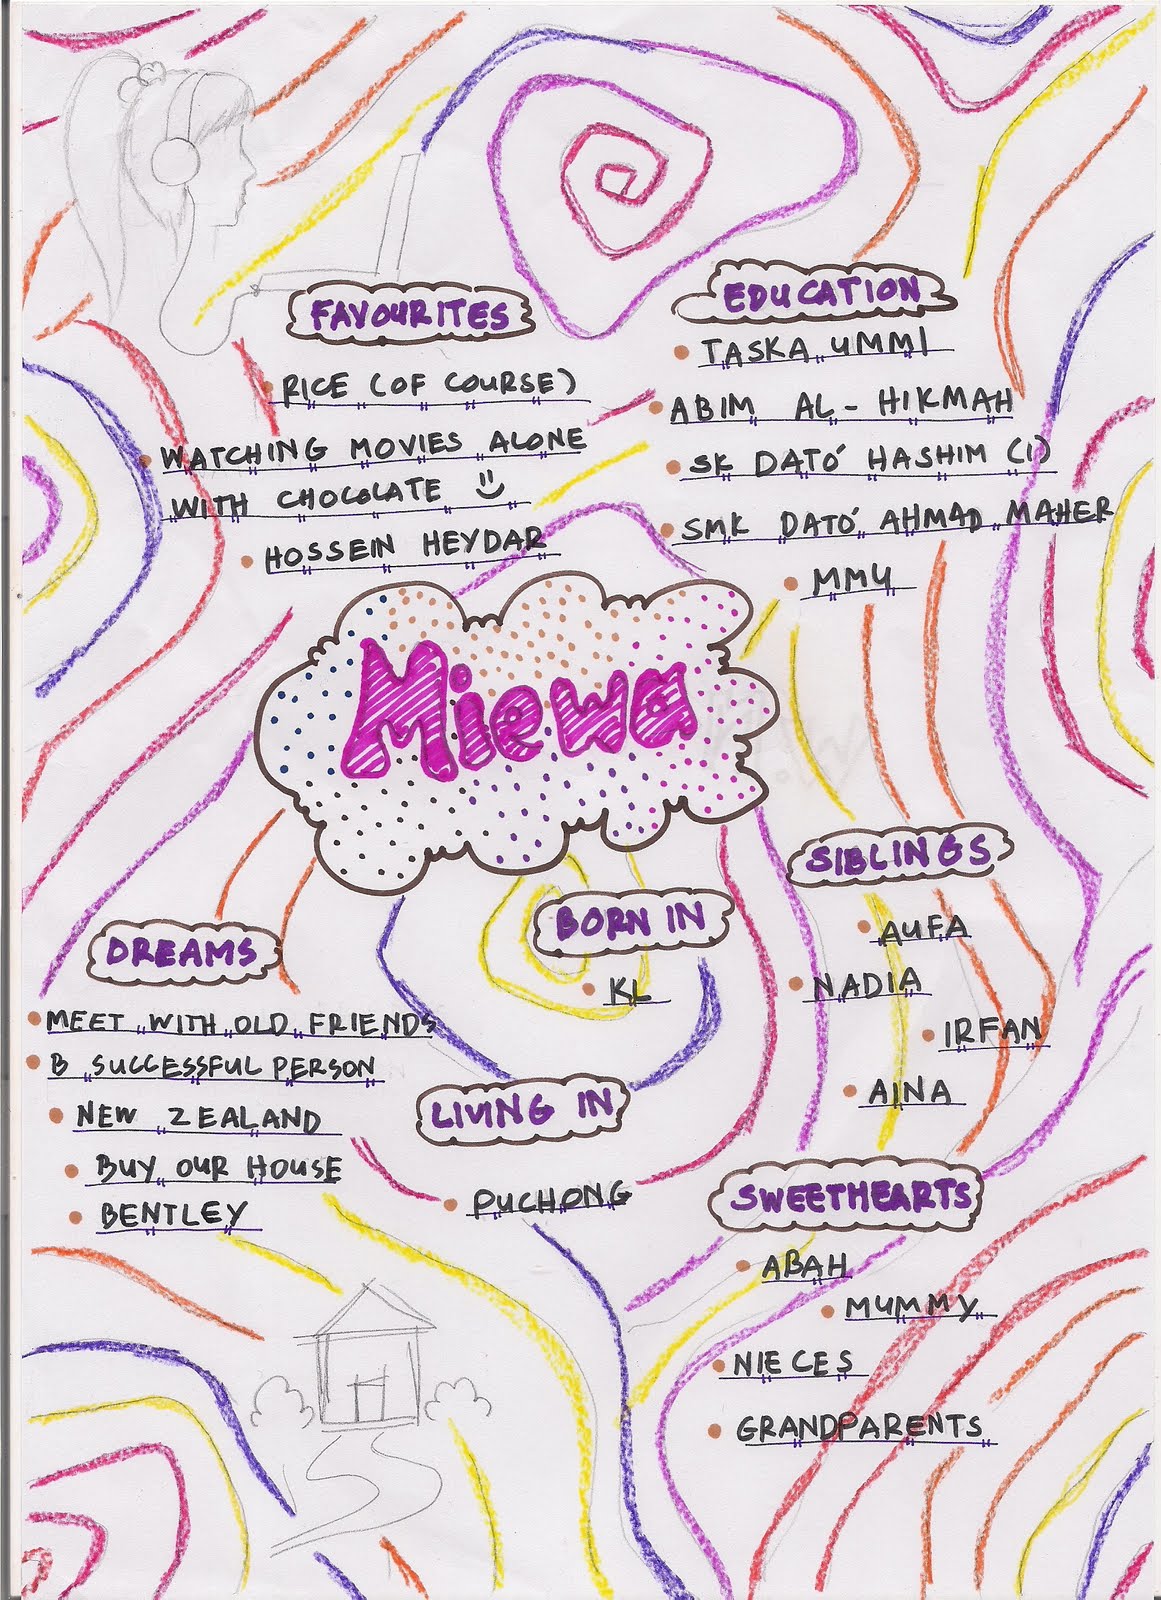 FAVOURITES
RICE (OF COURSE)
WATCHING MOVIES ALONE
WITH CHOCOLATE
HOSSEIN HEYDAR
EDUCATION
TASKA UMMI
ABIM AL-HIKMAH
SK DATO' HASHIM (1)
SMK DATO' AHMAD MAHER
MMU
Miewa
SIBLINGS
AUFA
NADIA
IRFAN
AINA
BORN IN
KL
DREAMS
MEET WITH OLD FRIENDS
B SUCCESSFUL PERSON
NEW ZEALAND
BUY OUR HOUSE
BENTLEY
LIVING IN
PUCHONG
SWEETHEARTS
ABAH
MUMMY
NIECES
GRANDPARENTS